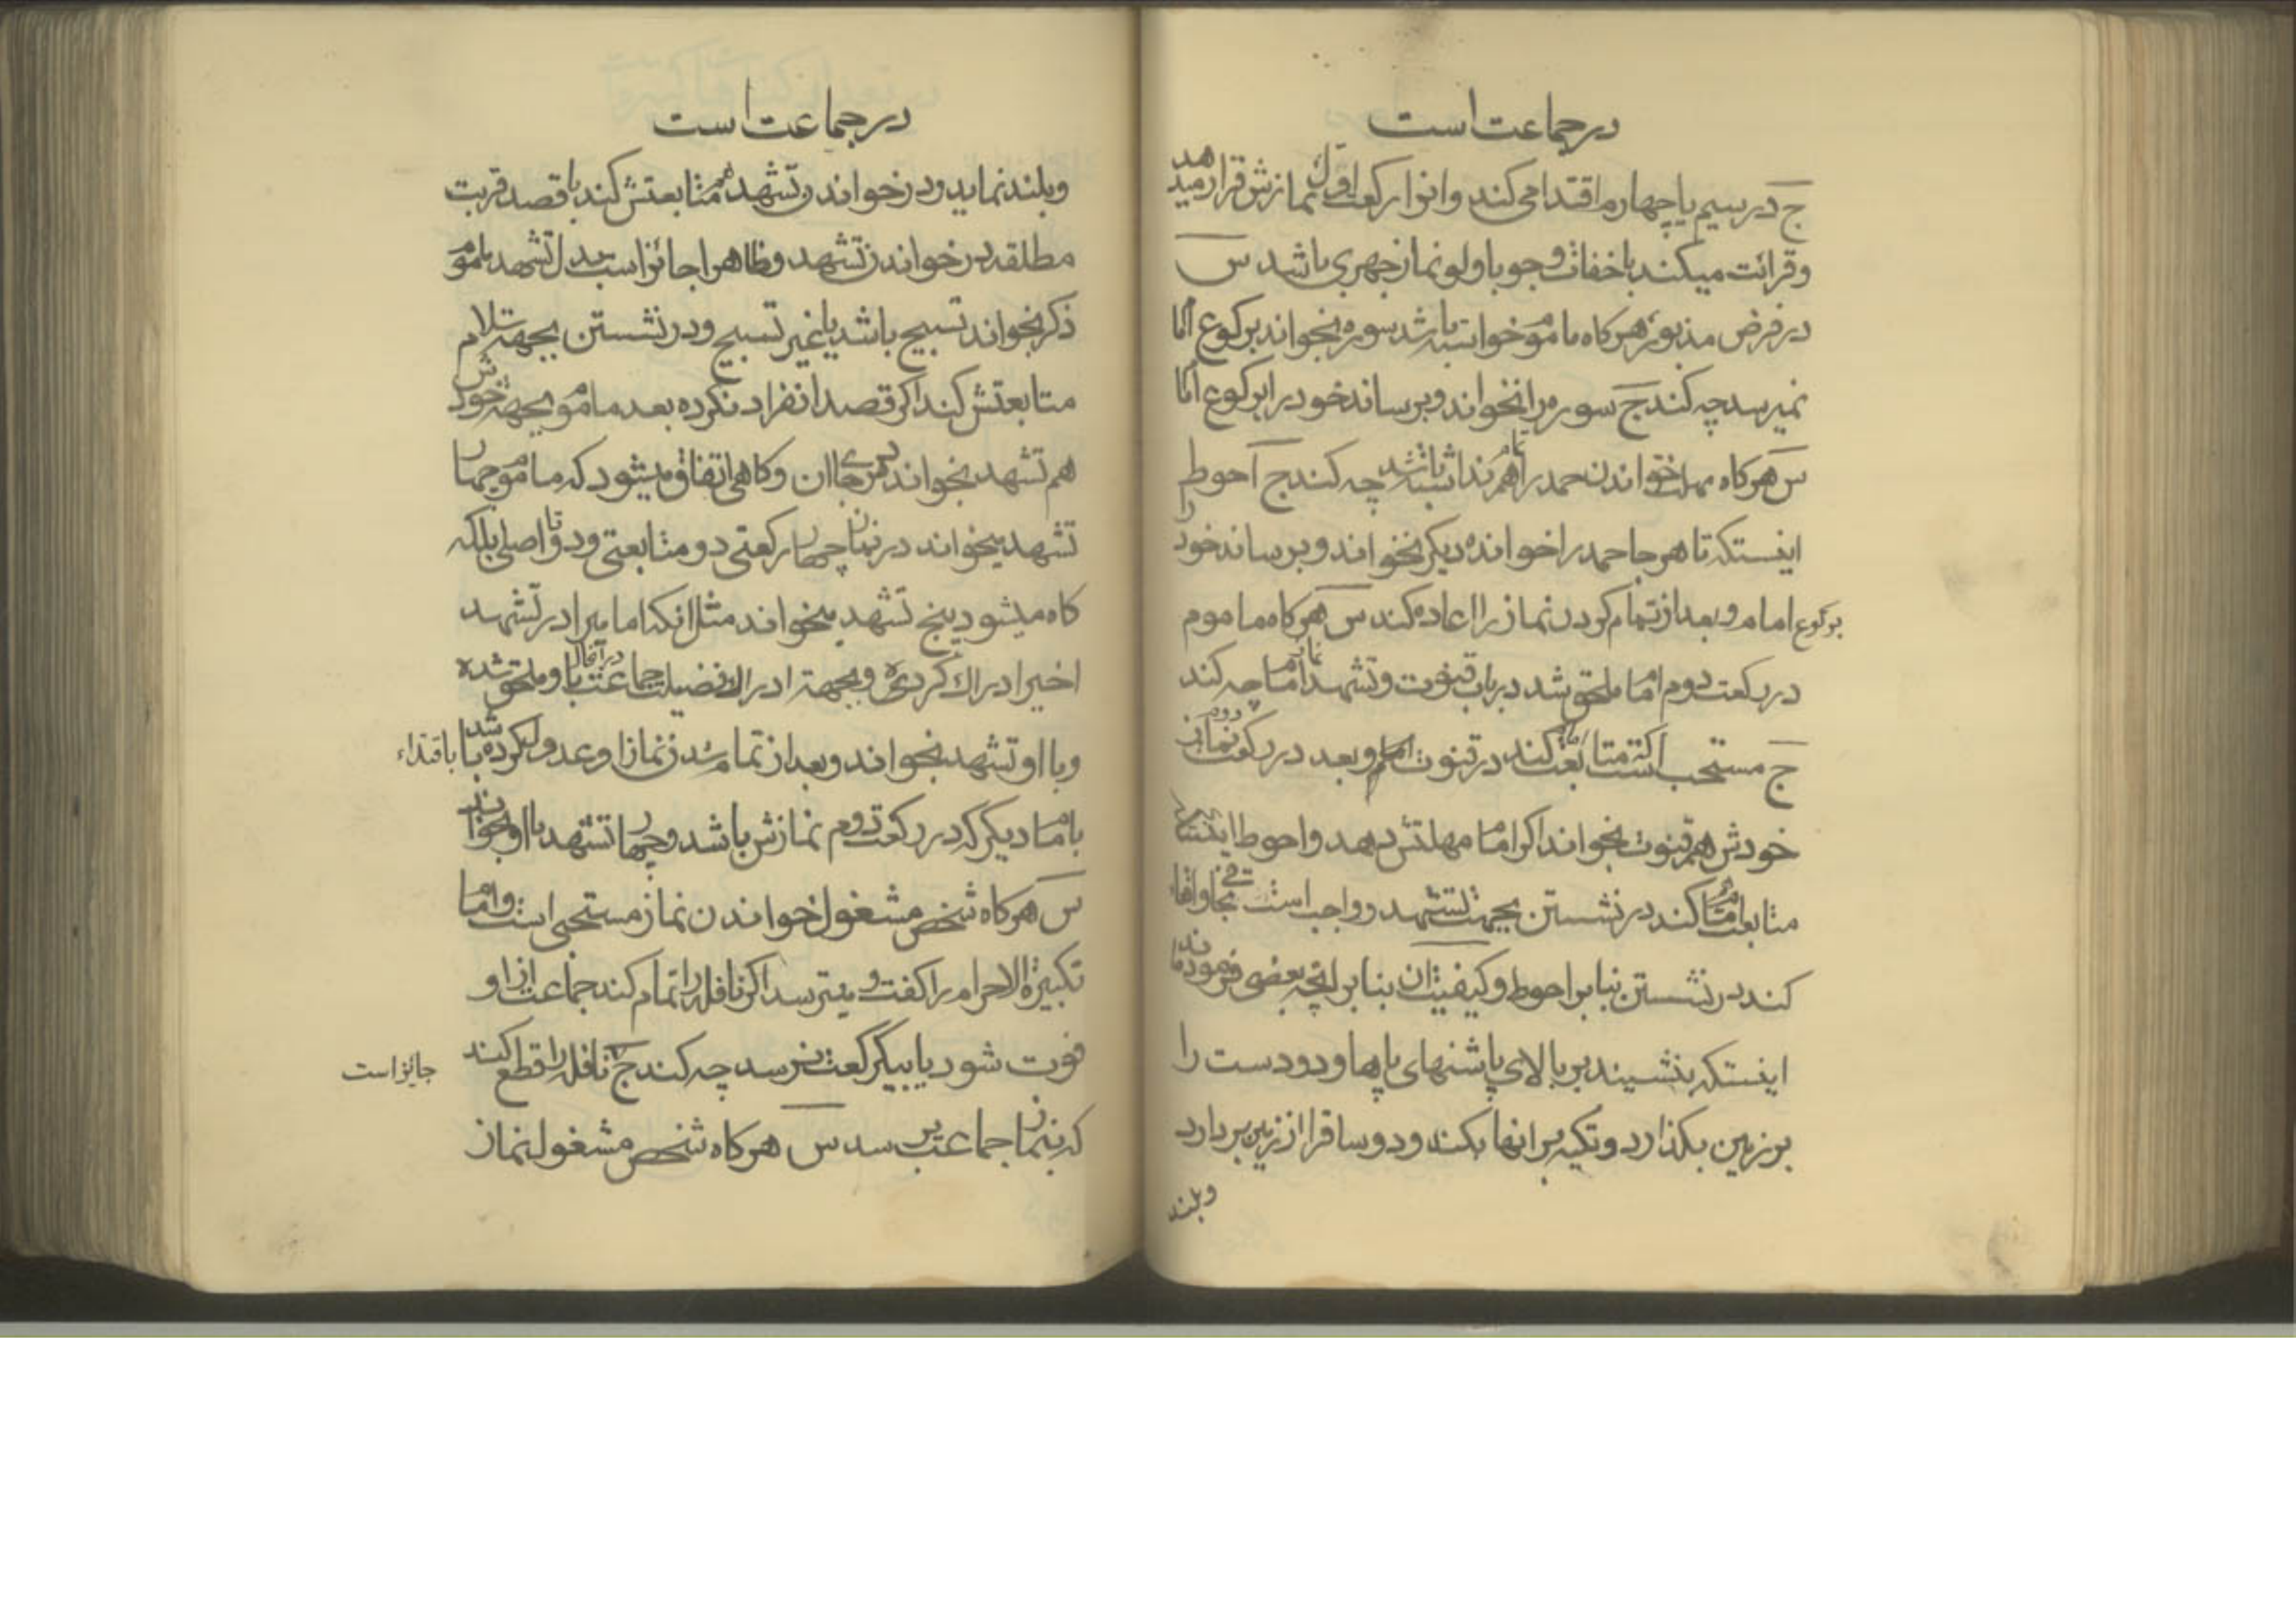 در جماعت است
ج در سیم یا چهارم اقتدا می کند و انرا رکعت اول نمازش قرار میدهد
و قرائت میکند باخفات وجوبا ولو نماز جهری باشد س
در فرض مذبور هرکاه ماموم خواسته باشد سوره بخواند برکوع امام
نمیرسد چه کند ج سوره را نخواند و برساند خود را برکوع امام
س هرکاه مهلت خواندن حمد را هم نداشته باشد چه کند ج احوط
اینستکه تا هر جا حمد را خوانده دیکر نخواند و برساند خود را
برکوع امام و بعد از تمام کردن نماز را اعاده کند س هرکاه ماموم
در رکعت دوم امام ملحق شد در باب قنوت و تشهد امام چه کند
ج مستحب است متابعت کند در قنوت امام و بعد در رکعت دوم نماز
خودش هم قنوت بخواند اکر امام مهلتش دهد و احوط اینستکه
متابعت امام کند در نشستن بجهت تشهد و واجب است تجافی
کند در نشستن بنا بر احوط و کیفیت ان بنا بر انچه بعضی فرموده‌اند
اینستکه بنشیند بر بالای پاشنهای پاها و دو دست را
بر زمین بکذارد و تکیه بر انها بکند و دو ساق را از زمین بر دارد
و بلند
در جماعت است
و بلند نماید و در خواندن تشهد هم متابعتش کند با قصد قربت
مطلقه در خواندن تشهد و ظاهرا جائز است بدل تشهد ماموم
ذکر بخواند تسبیح باشد یا غیر تسبیح و در نشستن بجهة سلام
متابعتش کند اکر قصد انفراد نکرده بعد ماموم بجهة خودش
هم تشهد بخواند در جای ان و کاهی اتفاق میشود که ماموم چهار
تشهد بخواند در نماز چهار رکعتی دو متابعتی و دو تا اصلی بلکه
کاه میشود پنج تشهد بخواند مثل انکه امامیرا در تشهد
اخیر ادراک کرده و بجهة ادراک فضیلت جماعت در آنحال باو ملحق شده
و با او تشهد بخواند و بعد از تمام شدن نماز او عدول کرده باشد باقتداء
بامام دیکر که در رکعت دوم نمازش باشد و چهار تشهد با او بخواند
س هرکاه شخص مشغول خواندن نماز مستحبی است و امام
تکبیرة الاحرام را کفت و میترسد اکر نافله را تمام کند جماعت از او
فوت شود یا بیکرکعت نرسد چه کند ج نافله را قطع کند جایز است
که بنماز جماعت برسد س هرکاه شخص مشغول نماز